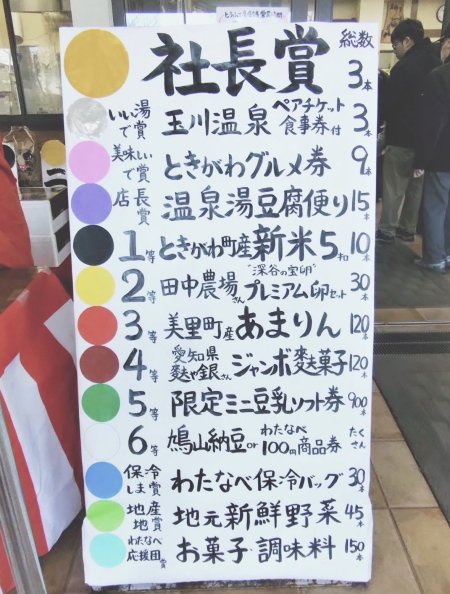 社長賞 総数 3本
いい湯で賞 玉川温泉 ペアチケット 食事券付 3本
美味いいで賞 ときがわグルメ券 9本
店長賞 温泉湯豆腐便り 15本
1等 ときがわ町産 新米5キロ 10本
2等 田中農場さん "深谷の宝卵" プレミアム卵セット 30本
3等 美里町産 あまりん 120本
4等 愛知県 麩や銀さん ジャンボ麩菓子 120本
5等 限定ミニ豆乳ソフト券 900本
6等 鳩山納豆 or わたなべ 100円商品券 たくさん
保冷しま賞 わたなべ保冷バッグ 30本
地産地賞 地元新鮮野菜 45本
わたなべ応援団賞 お菓子・調味料 150本